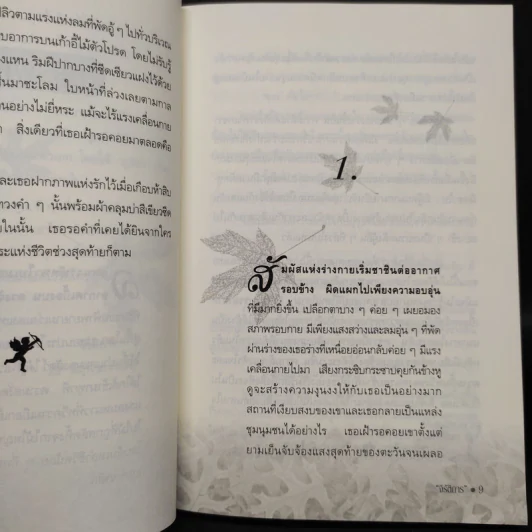 ปลิวตามแรงแห่งลมที่พัดอู้ ๆ ไปทั่วบริเวณ
บอาการบนเก้าอี้ไม้ตัวโปรด โดยไม่รับรู้
งแหน ริมฝีปากบางที่ซีดเซียวแฝงไว้ด้วย
ใบหน้าที่ล่วงเลยตามกาล
นอย่างไม่ยี่หระ แม้จะไร้แรงเคลื่อนกาย
สิ่งเดียวที่เธอเฝ้ารอคอยมาตลอดคือ
ละเธอฝากภาพแห่งรักไว้เมื่อเกือบห้าสิบ
ทวงคำ ๆ นั้นพร้อมผ้าคลุมบ่าสีเขียวซีด
ยในนั้น เธอรอคำที่เคยได้ยินจากใคร
ระแห่งชีวิตช่วงสุดท้ายก็ตาม
1.
สัมผัสแห่งร่างกายเริ่มชาชินต่ออากาศ
รอบข้าง ผิดแผกไปเพียงความอบอุ่น
ที่มีมากยิ่งขึ้น เปลือกตาบาง ๆ ค่อย ๆ เผยอมอง
สภาพรอบกาย มีเพียงแสงสว่างและลมอุ่น ๆ ที่พัด
ผ่านร่างของเธอร่างที่เหนื่อยอ่อนกลับค่อย ๆ มีแรง
เคลื่อนกายไปมา เสียงกระซิบกระซาบคุยกันข้างหู
ดูจะสร้างความงุนงงให้กับเธอเป็นอย่างมาก
สถานที่เงียบสงบของเขาและเธอกลายเป็นแหล่ง
ชุมนุมชนได้อย่างไร เธอเฝ้ารอคอยเขาตั้งแต่
ยามเย็นจับจ้องแสงสุดท้ายของตะวันจนเผลอ
9